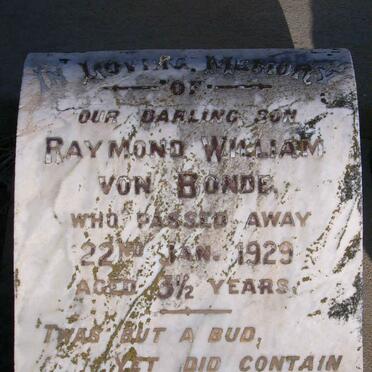 IN LOVING MEMORY
OF
OUR DARLING SON
RAYMOND WILLIAM
VON BONDE,
WHO PASSED AWAY
22ND JAN. 1929
AGED 3½ YEARS.
TWAS BUT A BUD,
YET DID CONTAIN